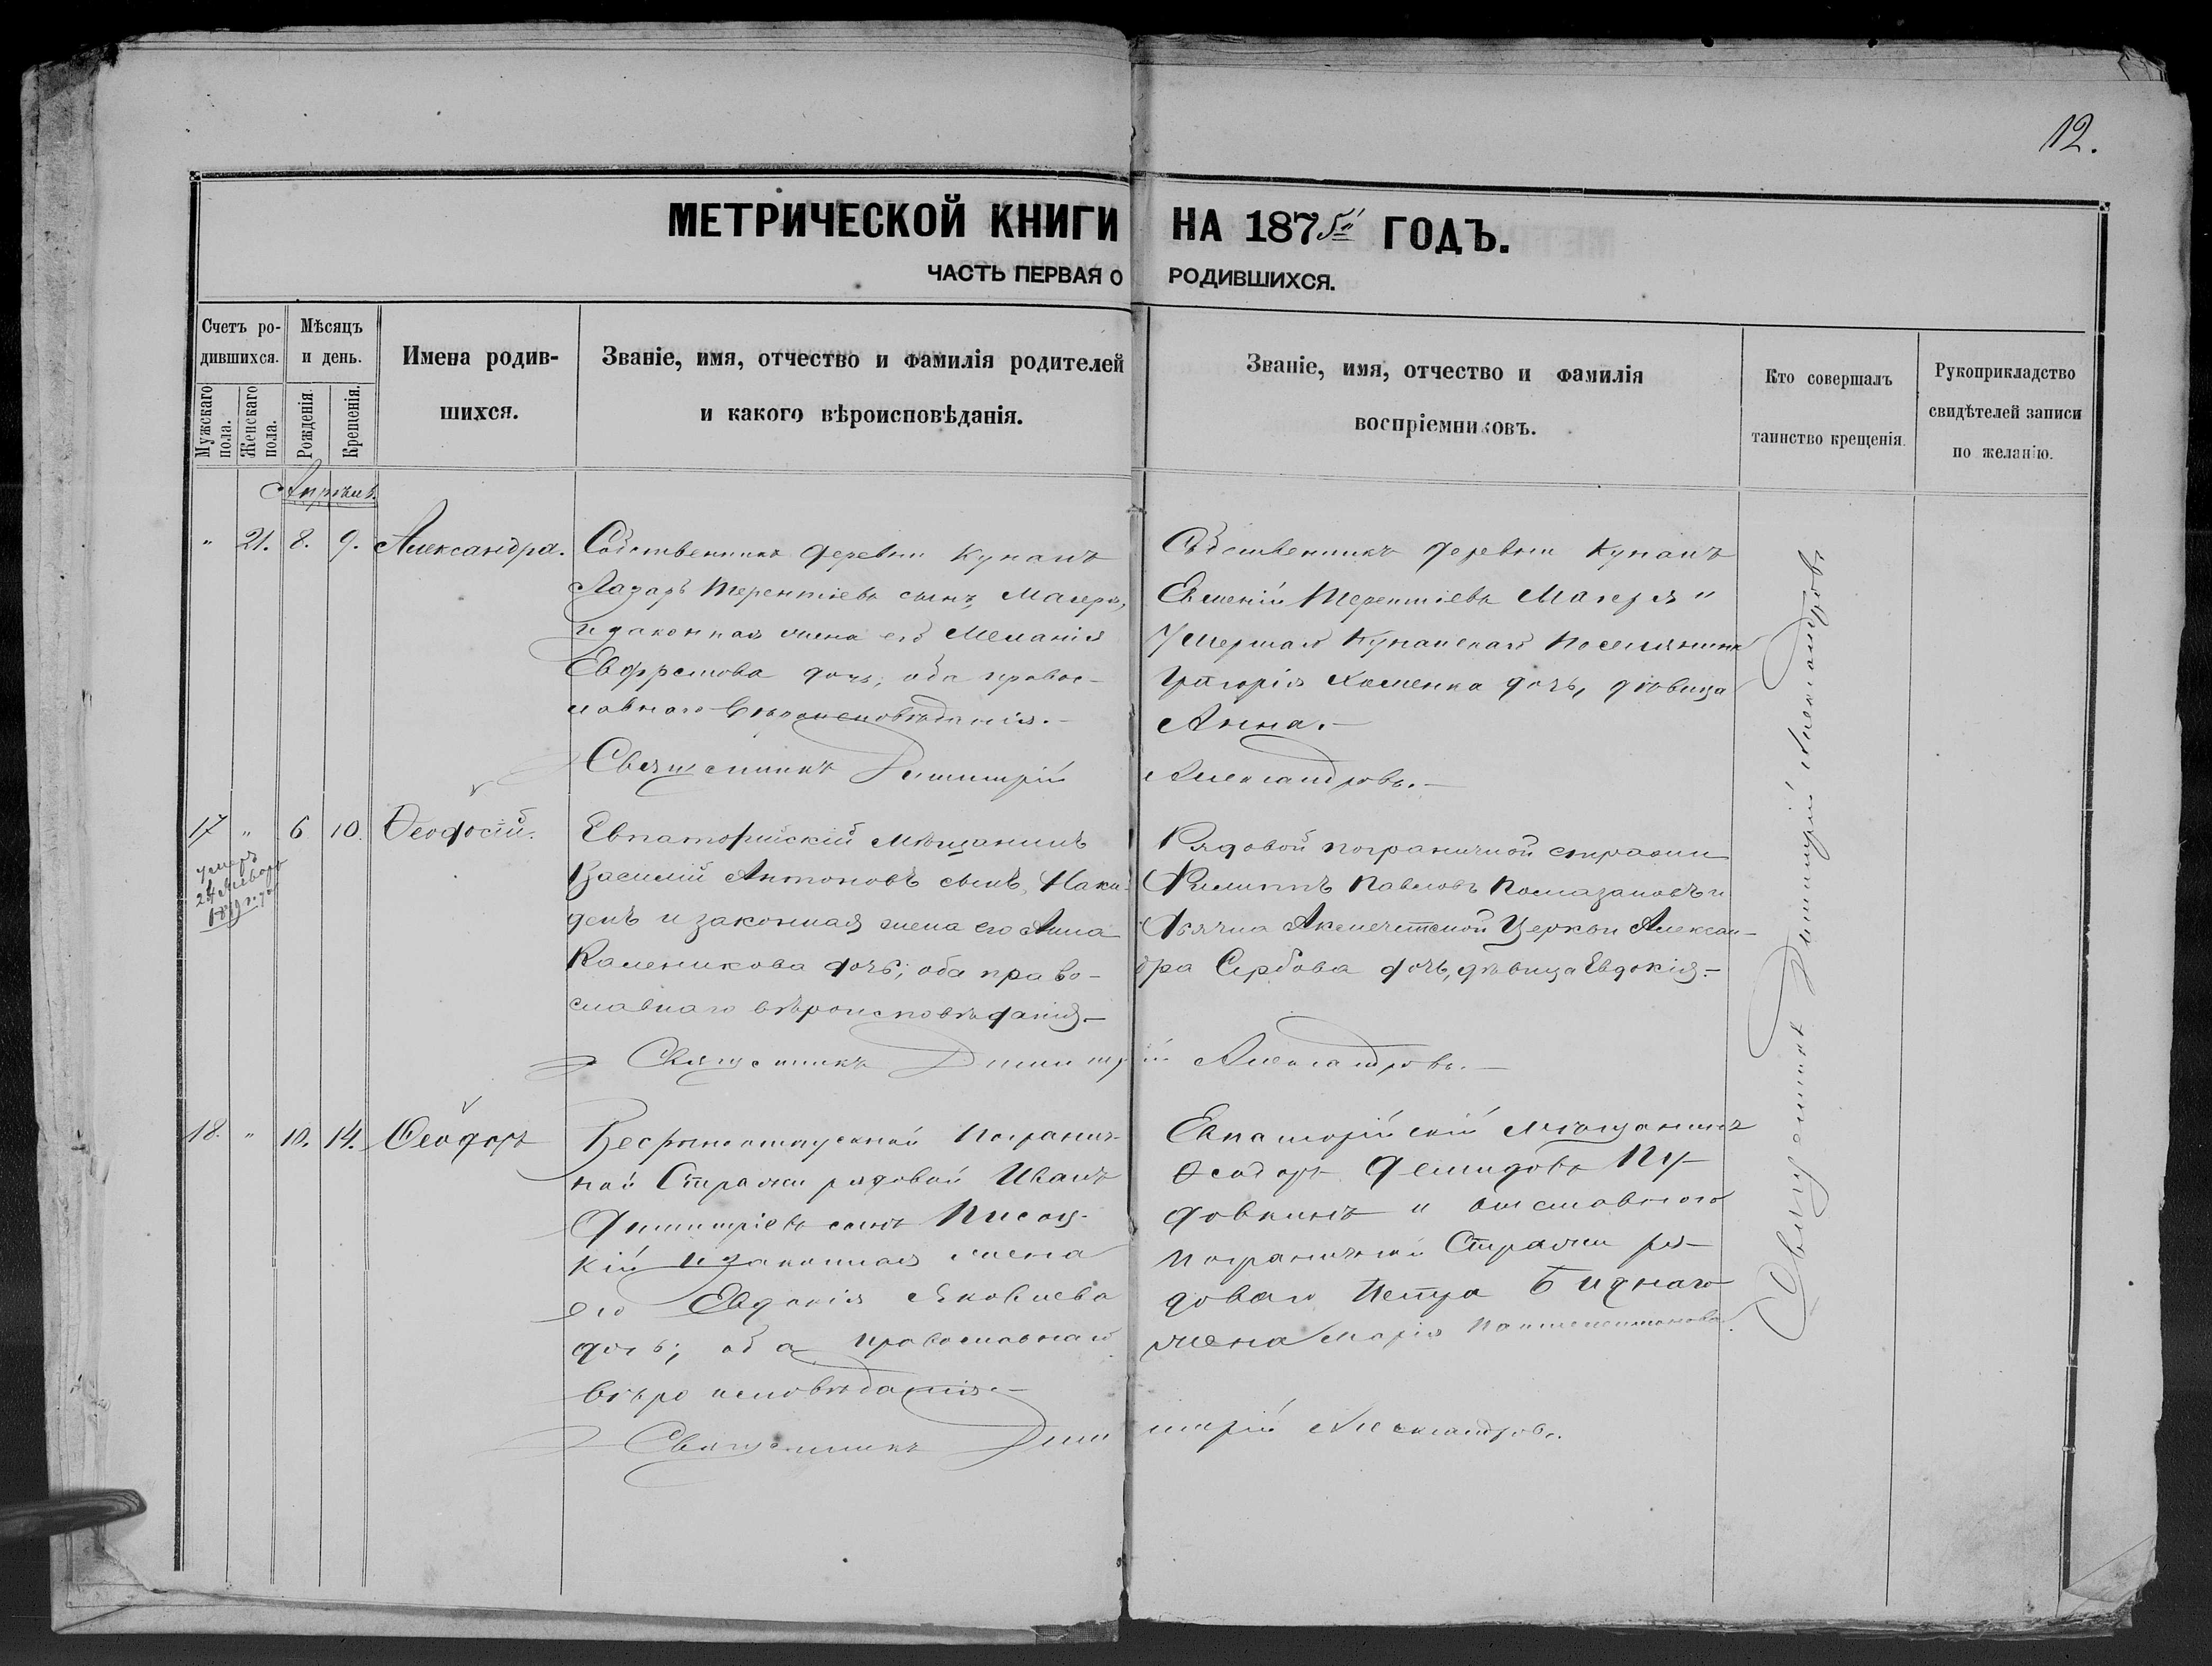 12.
МЕТРИЧЕСКОЙ КНИГИ НА 1875й ГОДЪ.
ЧАСТЬ ПЕРВАЯ О РОДИВШИХСЯ.
Счетъ ро-
дившихся.
Мужскаго
пола.
Женскаго
пола.
Мѣсяцъ
и день.
Рожденія.
Крещенія.
Имена родив-
шихся.
Званіе, имя, отчество и фамилія родителей
и какого вѣроисповѣданія.
Званіе, имя, отчество и фамилія
воспріемниковъ.
Кто совершалъ
таинство крещенія.
Рукоприкладство
свидѣтелей записи
по желанію.
Апрѣль.
" 21. 8. 9. Александра.
Собственникъ деревни Кунанъ
Лазарь Терентіевъ сынъ
и законная жена его Меланія
дочь; оба правос-
лавнаго вѣроисповѣданія.-
Собственникъ деревни Кунанъ
Евменій Терентіевъ и
умершаго Кунанскаго поселянина
Григорія Хоменка дочь, дѣвица
Анна.-
Священникъ Димитрій Александровъ.-
17 " 6 10. Ѳеодосій.
умеръ
24 Января
1879 года
Евпаторійскій мѣщанинъ
Василій Антоновъ сынъ, Наки-
денъ и законная жена его Анна
Каленикова дочь; оба право-
славнаго вѣроисповѣданія.-
Рядовой пограничной стражи
Филиппъ Павловъ Помазановъ и
дьячка Акмечетской Церкви Алексан-
дра Сербова дочь, дѣвица Евдокія.-
Священникъ Димитрій Александровъ.-
18. " 10. 14. Ѳеодоръ
Безсрочноотпускной погранич-
ной Стражи рядовой Иванъ
Димитріевъ сынъ Писоц-
кій и законная жена
его Евдокія Яковлева
дочь; оба православнаго
вѣроисповѣданія.-
Евпаторійскій мѣщанинъ
Ѳеодоръ Демидовъ Пу-
довкинъ и отставного
пограничной Стражи ря-
доваго Петра Биднаго
жена Марія Пантелеимонова.
Священникъ Димитрій Александровъ.
Священникъ Димитрій Александровъ